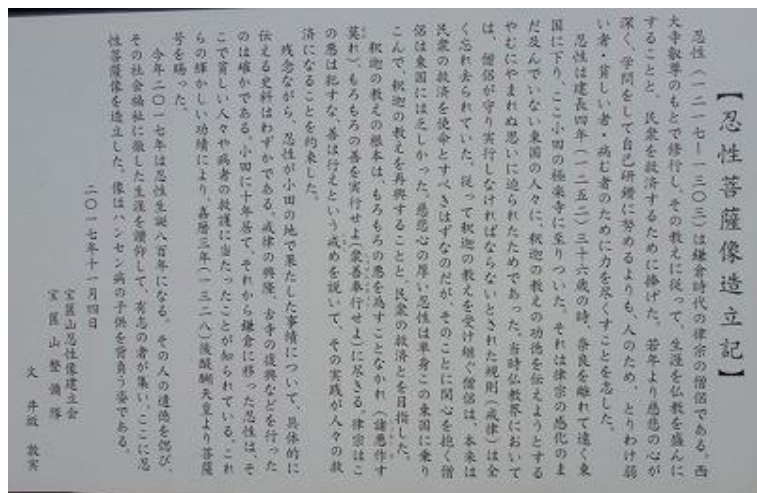 【忍性菩薩像造立記】
忍性(一二一七―一三〇三)は鎌倉時代の律宗の僧侶である。西
大寺叡尊のもとで修行し、その教えに従って、生涯を仏教を盛んに
することと、民衆を救済するために捧げた。若年より慈悲の心が
深く、学問をして自己研鑽に努めるよりも、人のため、とりわけ弱
い者・貧しい者・病む者のために力を尽くすことを志した。
忍性は建長四年(一二五二)三十六歳の時、奈良を離れて遠く東
国に下り、ここ小田の極楽寺に至りついた。それは律宗の感化のま
だ及んでいない東国の人々に、釈迦の教えの功徳を伝えようとする
やむにやまれぬ思いに迫られたためであった。当時仏教界において
は、僧侶が守り実行しなければならないとされた規則(戒律)は全
く忘れ去られていた。従って釈迦の教えを受け継ぐ僧侶は、本来は
民衆の救済を使命とすべきはずなのだが、そのことに関心を抱く僧
侶は東国には乏しかった。慈悲心の厚い忍性は単身この東国に乗り
こんで、釈迦の教えを再興することと、民衆の救済とを目指した。
釈迦の教えの根本は、もろもろの悪を為すことなかれ(諸悪作す
莫れ)、もろもろの善を実行せよ(衆善奉行せよ)に尽きる。律宗はこ
の悪は犯すな、善は行えという戒めを説いて、その実践が人々の救
済になることを約束した。
残念ながら、忍性が小田の地で果たした事績について、具体的に
伝える史料はわずかである。戒律の興隆、古寺の復興などを行った
のは確かである。小田に十年居て、それから鎌倉に移った忍性は、そ
こで貧しい人々や病者の救護に当たったことが知られている。これ
らの輝かしい功績により、嘉暦三年(一三二八)後醍醐天皇より菩薩
号を賜った。
今年二〇一七年は忍性生誕八百年になる。その人の遺徳を偲び、
その社会福祉に徹した生涯を讃仰して、有志の者が集い、ここに忍
性菩薩像を造立した。像はハンセン病の子供を背負う姿である。
二〇一七年十一月四日
宝篋山忍性像建立会
宝篋山整備隊
文 井坂 敦実